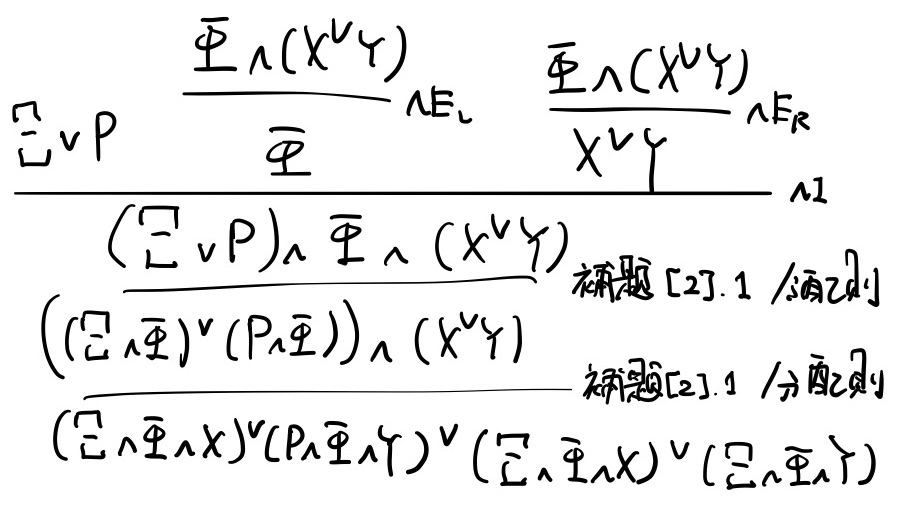 Φ∧(X∨Y) Φ∧(X∨Y)
Ξ∨P ∧E_L ∧E_R
Φ X∨Y
∧I
(Ξ∨P)∧Φ∧(X∨Y)
補題[2].1 /分配則
((Ξ∧Φ)∨(P∧Φ))∧(X∨Y)
補題[2].1 /分配則
(Ξ∧Φ∧X)∨(P∧Φ∧Y)∨(Ξ∧Φ∧X)∨(Ξ∧Φ∧Y)